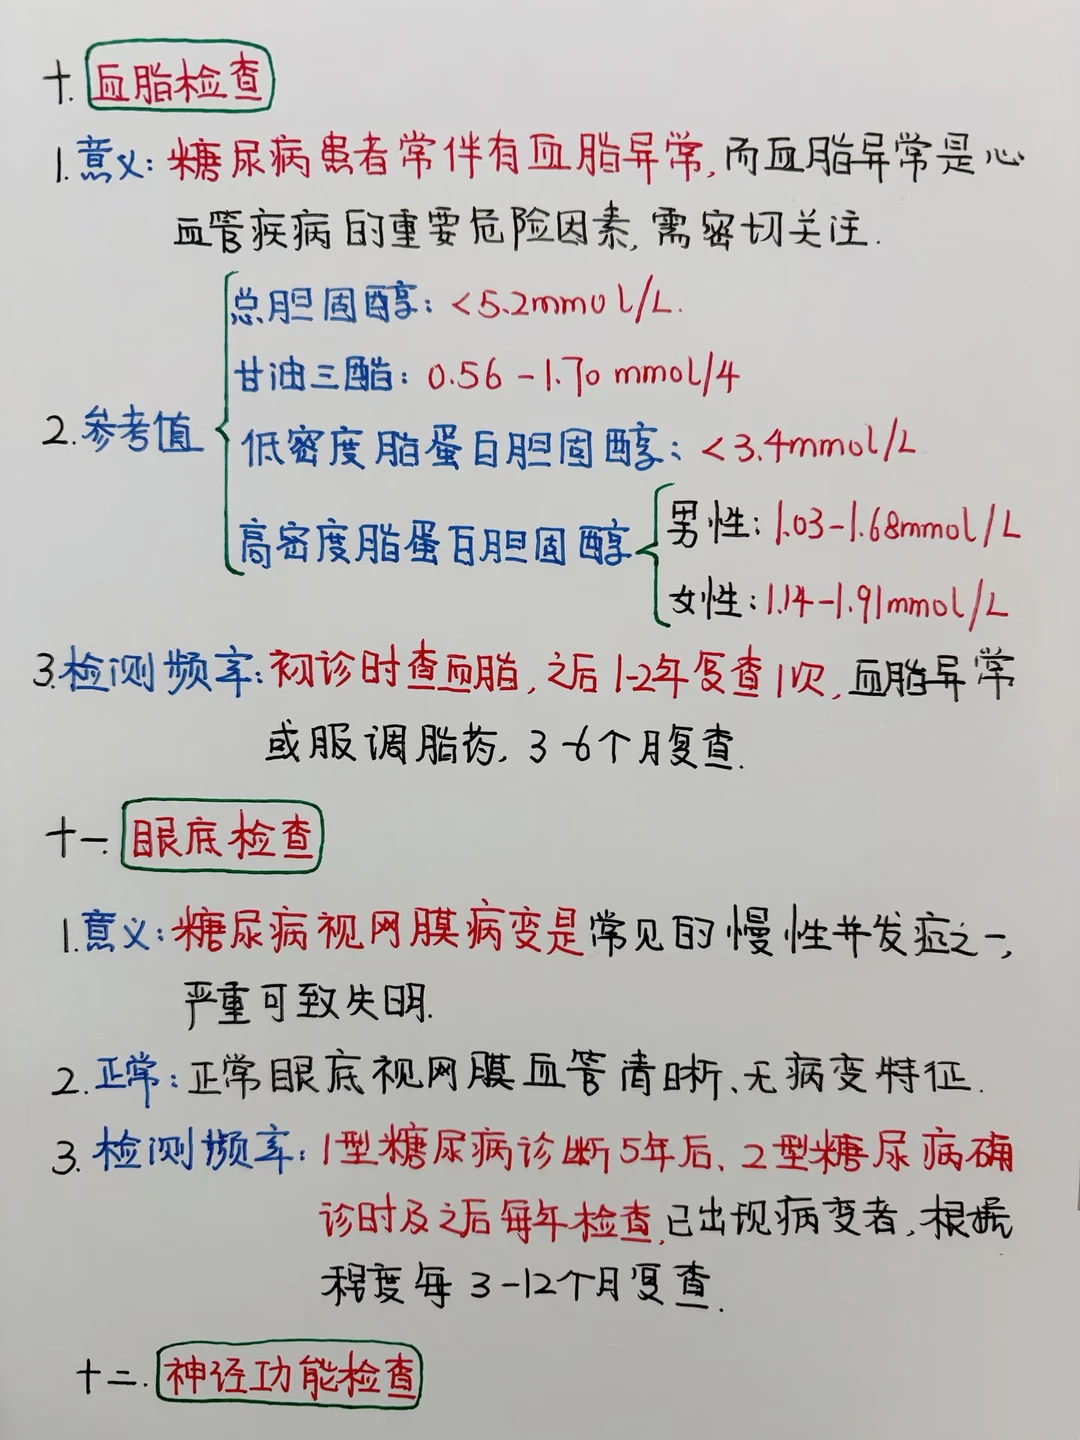 十. 血脂检查
1. 意义: 糖尿病患者常伴有血脂异常, 而血脂异常是心
血管疾病的重要危险因素, 需密切关注.
总胆固醇: <5.2mmol/L.
甘油三酯: 0.56-1.70 mmol/4
2. 参考值
低密度脂蛋白胆固醇: <3.4mmol/L
高密度脂蛋白胆固醇
男性: 1.03-1.68mmol/L
女性: 1.14-1.91mmol/L
3. 检测频率: 初诊时查血脂, 之后1-2年复查1次, 血脂异常
或服调脂药, 3-6个月复查.
十一. 眼底检查
1. 意义: 糖尿病视网膜病变是常见的慢性并发症之一,
严重可致失明.
2. 正常: 正常眼底视网膜血管清晰、无病变特征.
3. 检测频率: 1型糖尿病诊断5年后、2型糖尿病确
诊时及之后每年检查, 已出现病变者, 根据
程度每3-12个月复查.
十二. 神经功能检查